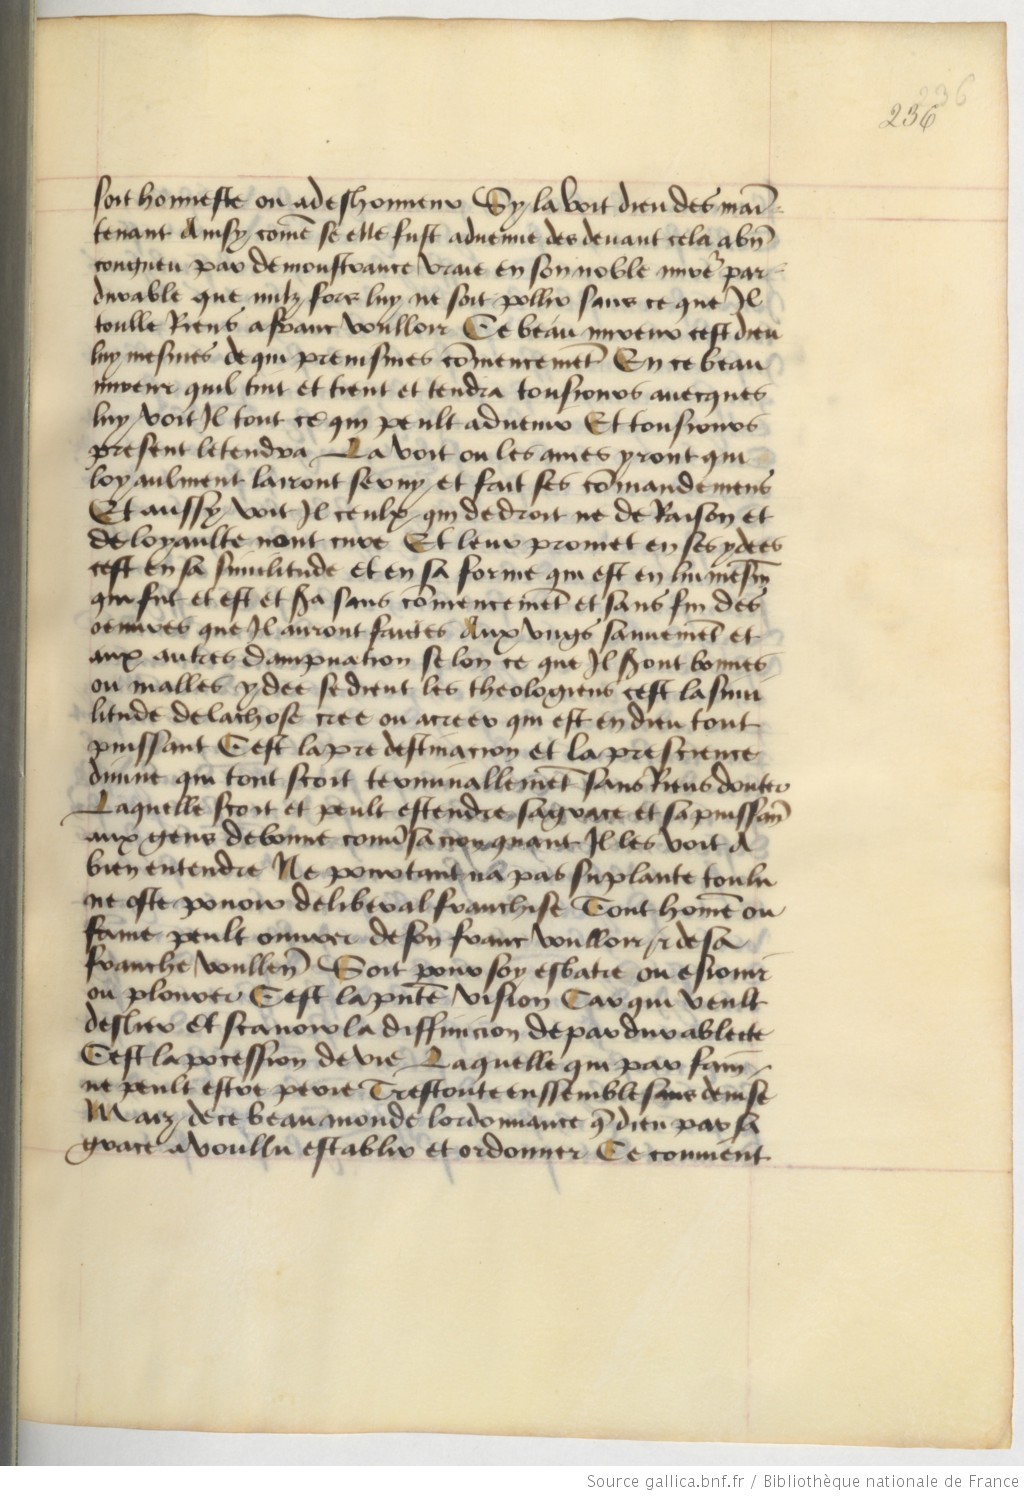 236
236
soit honneste ou a deshonneur Sy la voit dieu des mai͂
tenant Ainsy com̃e se elle fust aduenue des deuant cela a bn̄
congneu par demoustrance vraie en son noble mire᷑ par
durable que nulz fors luy ne soit pollir sans ce que Il
toulle Riens a franc voulloir Ce beau mireur cest dieu
luy mesmes de qui prenismes cōmencemēt En ce beau
mireur quil tint et tient et tendra tousiours auecques
luy voit Il tout ce qui peult aduenir Et tousiours
present le tendra La voit ou les ames yront qui
loyaulment lairont seruy et fait ses cōmandemens
Et aussy voit Il ceulx qui de droit ne de Raison et
de loyaulte nont cure Et leur promet en ses ydees
cest en sa similitude et en sa forme qui est en lui mesm̄
qui fut et est et s̃a sans cōmencemēt et sans fin des
oeuures que Il auront faictes Aux vngs sauuemēt et
aux autres dampnation selon ce que Il s̃ont bonnes
ou malles ydee se dient les theologiens cest la simi
litude de la chose cree ou a creer qui est en dieu tout
puissant Cest la predestinacion et la prescience
diuine qui tout scoit terminallemēt sans Riens doubter
Laquelle scoit et peult estendre sa grace et sa puissan̄
aux gens de bonne conũsacion quant Il les voit A
bien entendre Ne pourtant na pas suplante toulu
ne oste pouoir de liberal franchise Tout hom̃e ou
fame peult ouurer de son franc voulloir / r de sa
franche voullen̄ Soit pour soy esbatre ou esiouir
ou plourer Cest la pn̄te vision Car qui veult
deslier Et scauoir la diffinicion de pardurablecte
Cest la pocession de vie Laquelle qui par fain̄
ne peult estre perie Trestoute enssemble sans deuise
Maiz de ce beau monde lordonnance q̄ dieu par sa
grace a voullu establir et ordonner Ce conuient
Source gallica.bnf.fr / Bibliothèque nationale de France